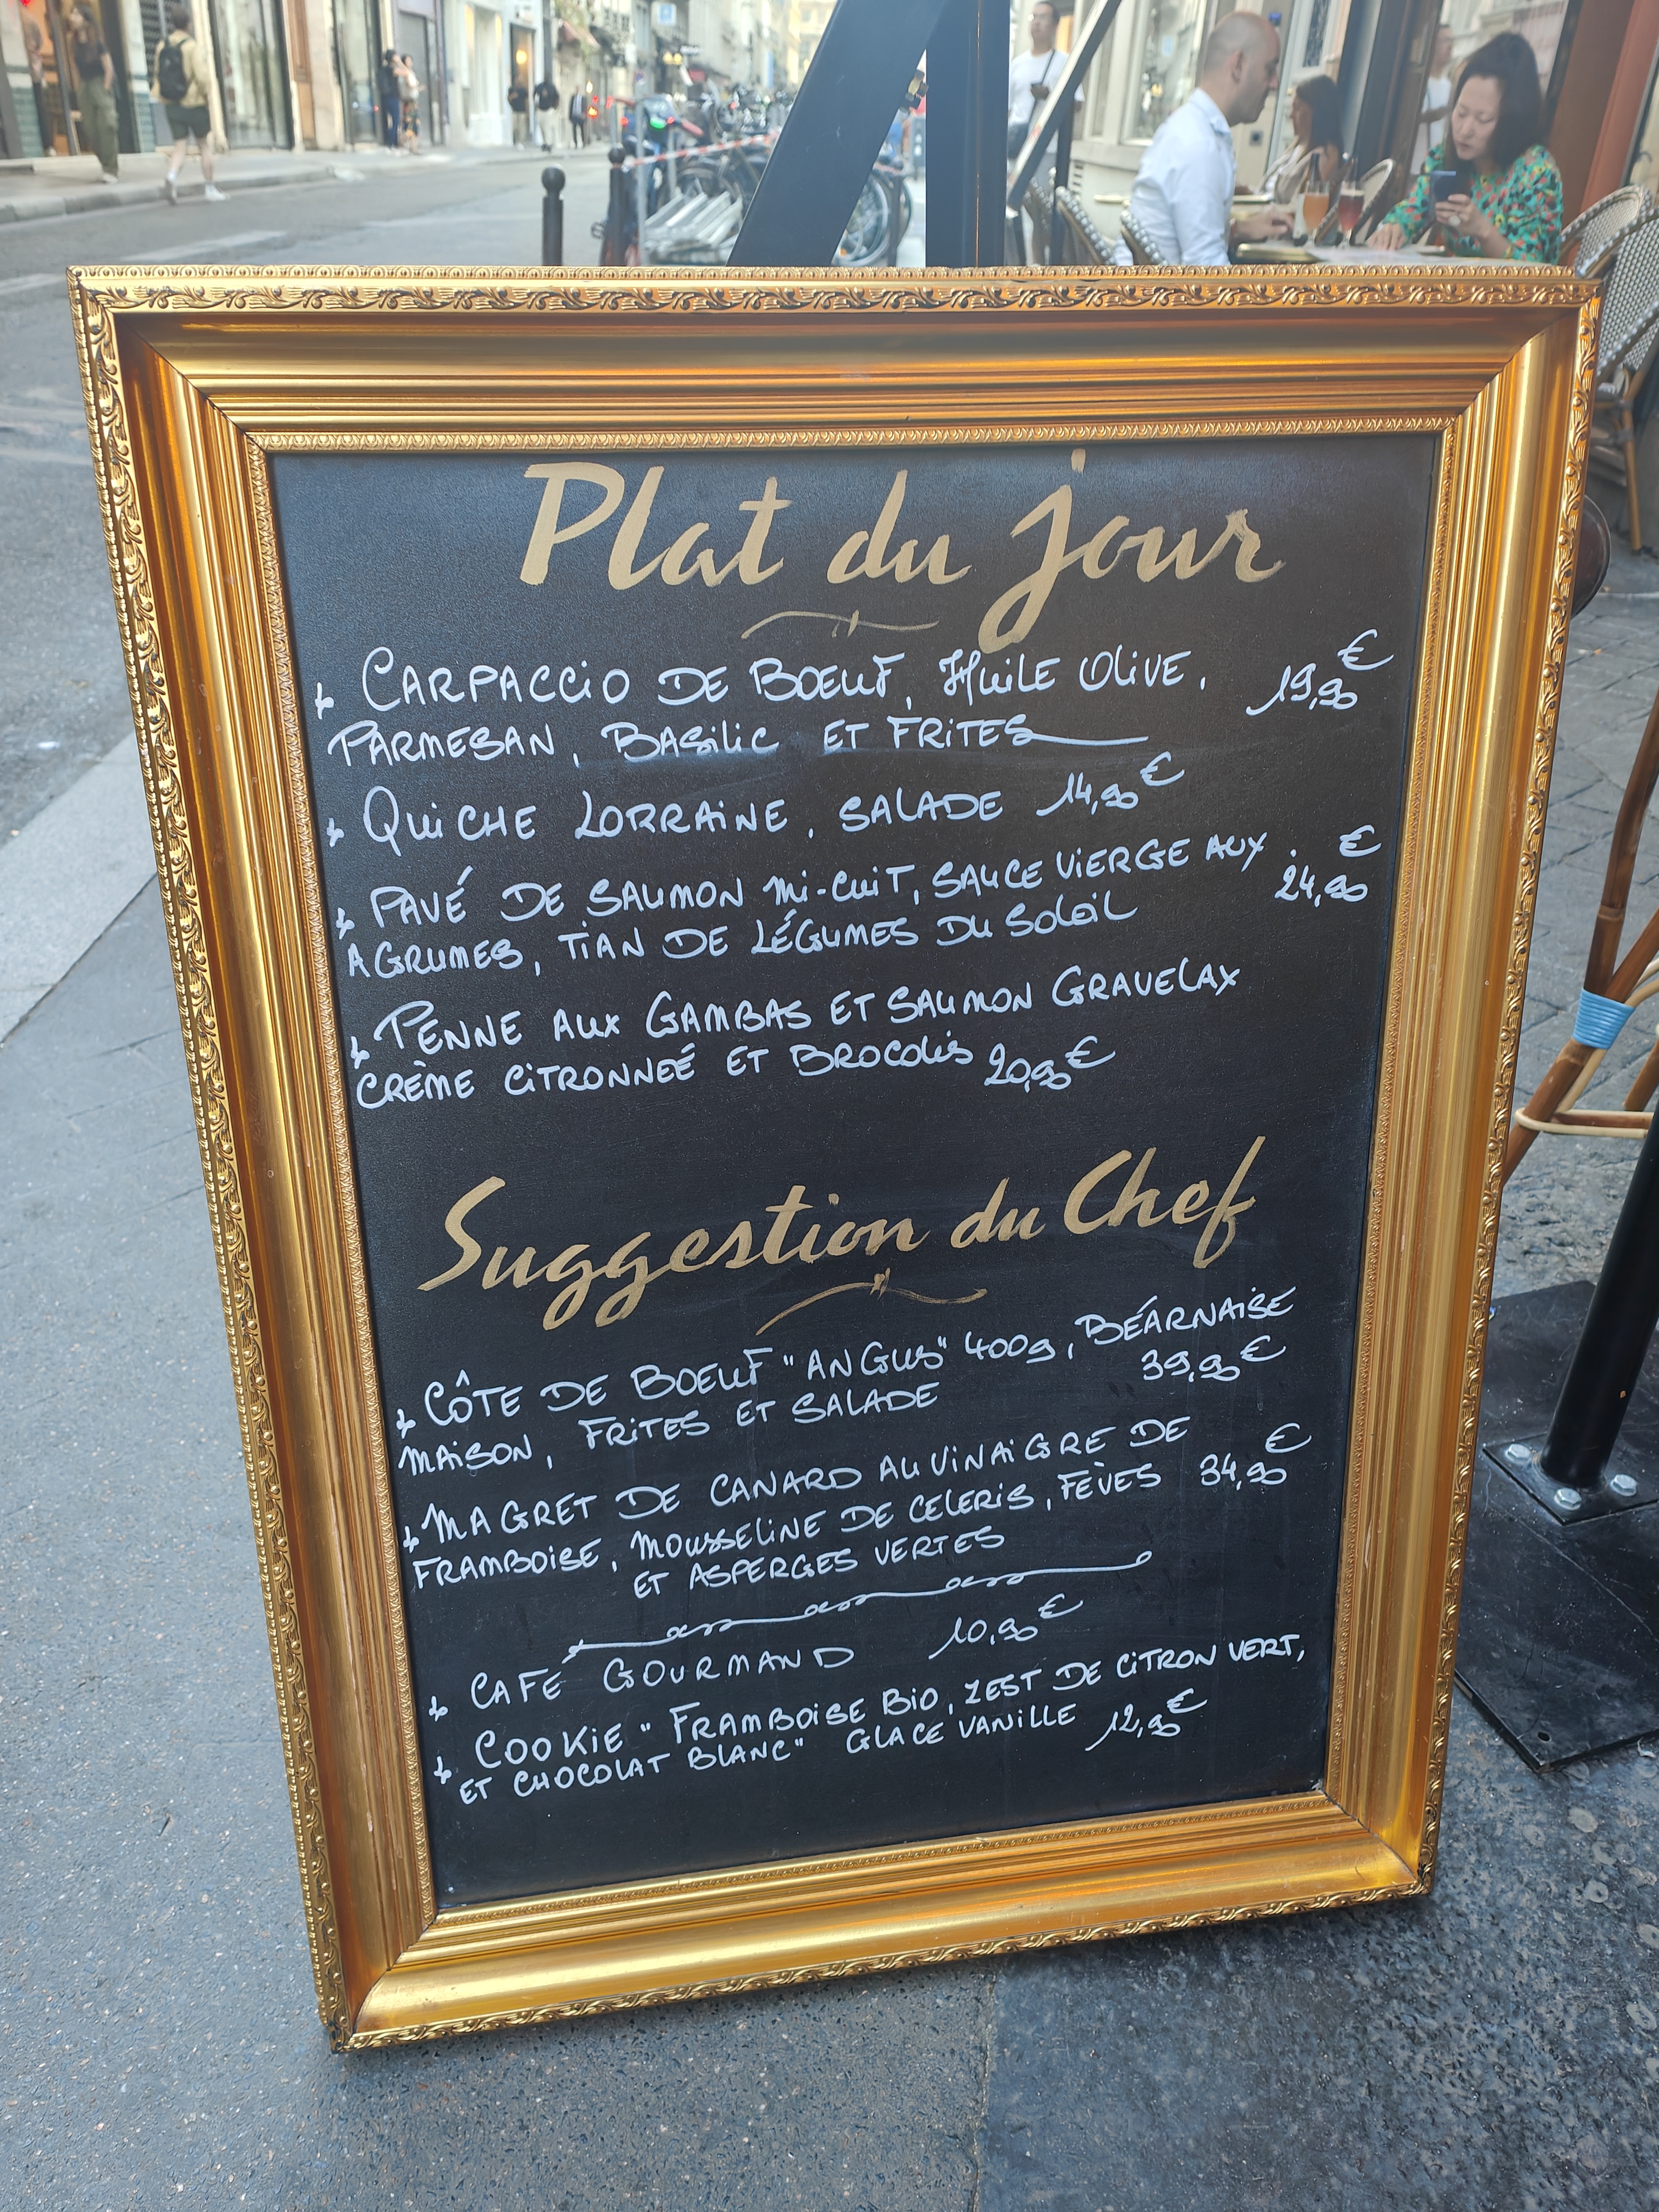 Plat du jour
CARPACCIO DE BOEUF, HUILE OLIVE, 19,90€
PARMESAN, BASILIC ET FRITES
QUICHE LORRAINE, SALADE 14,90€
PAVÉ DE SAUMON MI-CUIT, SAUCE VIERGE AUX 24,90€
AGRUMES, TIAN DE LÉGUMES DU SOLEIL
PENNE AUX GAMBAS ET SAUMON GRAVELAX
CRÈME CITRONNEÉ ET BROCOLIS 20,90€
Suggestion du Chef
CÔTE DE BOEUF "ANGUS" 400g, BÉARNAISE
MAISON, FRITES ET SALADE 39,90€
MAGRET DE CANARD AU VINAIGRE DE
FRAMBOISE, MOUSSELINE DE CELERIS, FÈVES 34,90€
ET ASPERGES VERTES
CAFÉ GOURMAND 10,90€
COOKIE "FRAMBOISE BIO, ZEST DE CITRON VERT,
ET CHOCOLAT BLANC" GLACE VANILLE 12,90€